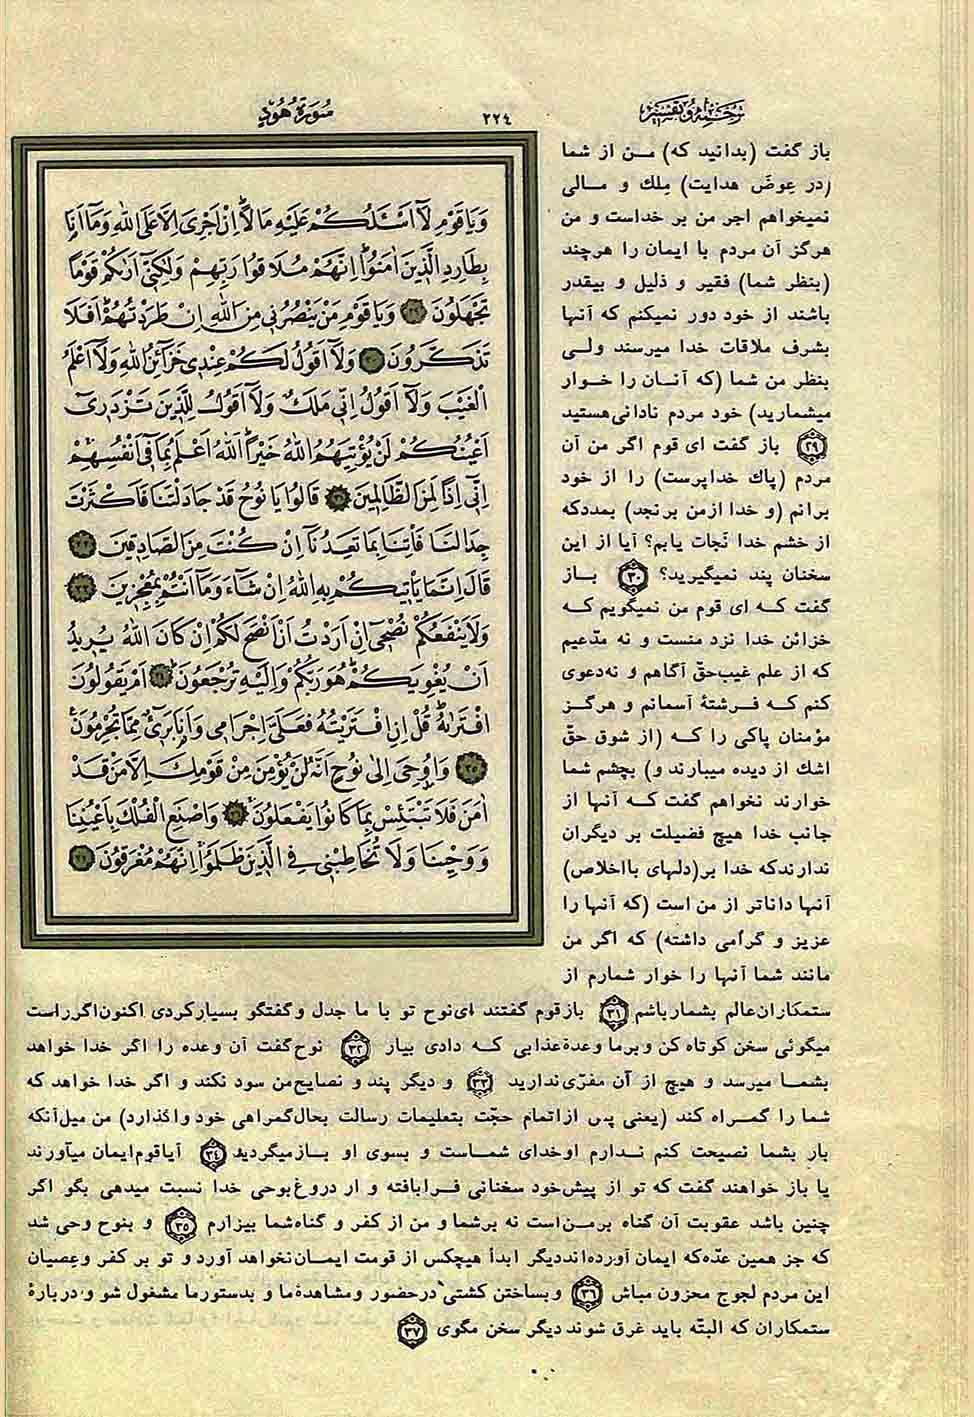 ترجمه و تفسیر
۲۲۴
سُورَةُ هُودٍ
وَيَا قَوْمِ لَآ اَسْئَلُكُمْ عَلَيْهِ مَالًاۜ اِنْ اَجْرِىَ اِلَّا عَلَى اللّٰهِ وَمَآ اَنَا۬
بِطَارِدِ الَّذِينَ اٰمَنُواۜ اِنَّهُمْ مُلَاقُوا رَبِّهِمْ وَلٰكِنّٖٓى اَرٰيكُمْ قَوْمًا
تَجْهَلُونَ ۲۹ وَيَا قَوْمِ مَنْ يَنْصُرُنٖى مِنَ اللّٰهِ اِنْ طَرَدْتُهُمْۜ اَفَلَا
تَذَكَّرُونَ ۳۰ وَلَآ اَقُولُ لَكُمْ عِنْدٖى خَزَآئِنُ اللّٰهِ وَلَآ اَعْلَمُ
الْغَيْبَ وَلَآ اَقُولُ اِنّٖى مَلَكٌ وَلَآ اَقُولُ لِلَّذِينَ تَزْدَرٖٓى
اَعْيُنُكُمْ لَنْ يُؤْتِيَهُمُ اللّٰهُ خَيْرًاۜ اَللّٰهُ اَعْلَمُ بِمَا فٖٓى اَنْفُسِهِمْۚ
اِنّٖٓى اِذًا لَمِنَ الظَّالِمِينَ ۳۱ قَالُوا يَا نُوحُ قَدْ جَادَلْتَنَا فَاَكْثَرْتَ
جِدَالَنَا فَأْتِنَا بِمَا تَعِدُنَآ اِنْ كُنْتَ مِنَ الصَّادِقِينَ ۳۲
قَالَ اِنَّمَا يَأْتِيكُمْ بِهِ اللّٰهُ اِنْ شَآءَ وَمَآ اَنْتُمْ بِمُعْجِزِينَ ۳۳
وَلَا يَنْفَعُكُمْ نُصْحٖٓى اِنْ اَرَدْتُ اَنْ اَنْصَحَ لَكُمْ اِنْ كَانَ اللّٰهُ يُرِيدُ
اَنْ يُغْوِيَكُمْۜ هُوَ رَبُّكُمْ وَاِلَيْهِ تُرْجَعُونَۜ ۳۴ اَمْ يَقُولُونَ
افْتَرٰيهُۜ قُلْ اِنِ افْتَرَيْتُهُ فَعَلَىَّ اِجْرَامٖى وَاَنَا۬ بَرٖٓىءٌ مِمَّا تُجْرِمُونَ۟
۳۵ وَاُوحِىَ اِلٰى نُوحٍ اَنَّهُ لَنْ يُؤْمِنَ مِنْ قَوْمِكَ اِلَّا مَنْ قَدْ
اٰمَنَ فَلَا تَبْتَئِسْ بِمَا كَانُوا يَفْعَلُونَۚ ۳۶ وَاصْنَعِ الْفُلْكَ بِاَعْيُنِنَا
وَوَحْيِنَا وَلَا تُخَاطِبْنٖى فِى الَّذِينَ ظَلَمُواۚ اِنَّهُمْ مُغْرَقُونَ ۳۷
باز گفت (بدانید که) من از شما
(در عِوضَ هدایت) مِلك و مالی
نمیخواهم اجر من بر خداست و من
هرگز آن مردم با ایمان را هرچند
(بنظر شما) فقیر و ذلیل و بیقدر
باشند از خود دور نمیکنم که آنها
بشرف ملاقات خدا میرسند ولی
بنظر من شما (که آنان را خوار
میشمارید) خود مردم نادانی هستید
۲۹ باز گفت ای قوم اگر من آن
مردم (پاك خداپرست) را از خود
برانم (و خدا ازمن برنجد) بمددکه
از خشم خدا نَجات یابم؟ آیا از این
سخنان پند نمیگیرید؟ ۳۰ باز
گفت که ای قوم من نمیگویم که
خزائن خدا نزد منست و نه مدّعیم
که از علم غیب‌حقّ آگاهم و نه‌دعوی
کنم که فرشتهٔ آسمانم و هرگز
مؤمنان پاکی را که (از شوق حقّ
اشك از دیده میبارند و) بچشم شما
خوارند نخواهم گفت که آنها از
جانب خدا هیچ فضیلت بر دیگران
ندارندکه خدا بر(دلهای بااخلاص)
آنها داناتر از من است (که آنها را
عزیز و گرامی داشته) که اگر من
مانند شما آنها را خوار شمارم از
ستمکاران عالم بشمارباشم ۳۱ بازقوم گفتند ای‌نوح تو با ما جدل و گفتگو بسیارکردی اکنون‌اگرراست
میگوئی سخن کوتاه کن و برما وعدهٔ‌عذابی که دادی بیار ۳۲ نوح‌گفت آن وعده را اگر خدا خواهد
بشما میرسد و هیچ از آن مفرّی‌ندارید ۳۳ و دیگر پند و نصایح‌من سود نکند و اگر خدا خواهد که
شما را گمراه کند (یعنی پس ازاتمام حجّت بتعلیمات رسالت بحال‌گمراهی خود واگذارد) من میل‌آنکه
باز بشما نصیحت کنم ندارم اوخدای شماست و بسوی او بازمیگردید ۳۴ آیاقوم‌ایمان میآورند
یا باز خواهند گفت که تو از پیش‌خود سخنانی فرابافته و از دروغ‌بوحی خدا نسبت میدهی بگو اگر
چنین باشد عقوبت آن گناه برمن‌است نه برشما و من از کفر و گناه‌شما بیزارم ۳۵ و بنوح وحی شد
که جز همین عدّه‌که ایمان آورده‌انددیگر ابدأ هیچکس از قومت ایمان‌نخواهد آورد و تو بر کفر و عِصیان
این مردم لجوج محزون مباش ۳۶ و بساختن کشتی درحضور و مشاهدهٔ‌ما و بدستورما مشغول شو و دربارهٔ
ستمکاران که البتّه باید غرق شوند دیگر سخن مگوی ۳۷